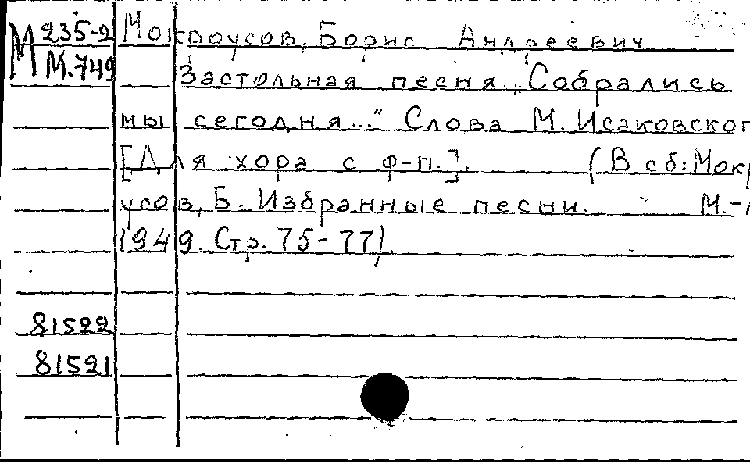 М 235-2 Мокроусов, Борис Андреевич
М.749 Застольная песня „Собрались
мы сегодня..." Слова М. Исаковског
[Для хора с ф-п.]. (В сб: Мокр
усов, Б. Избранные песни. М.-
1949. Стр. 75-77)
81522
81521